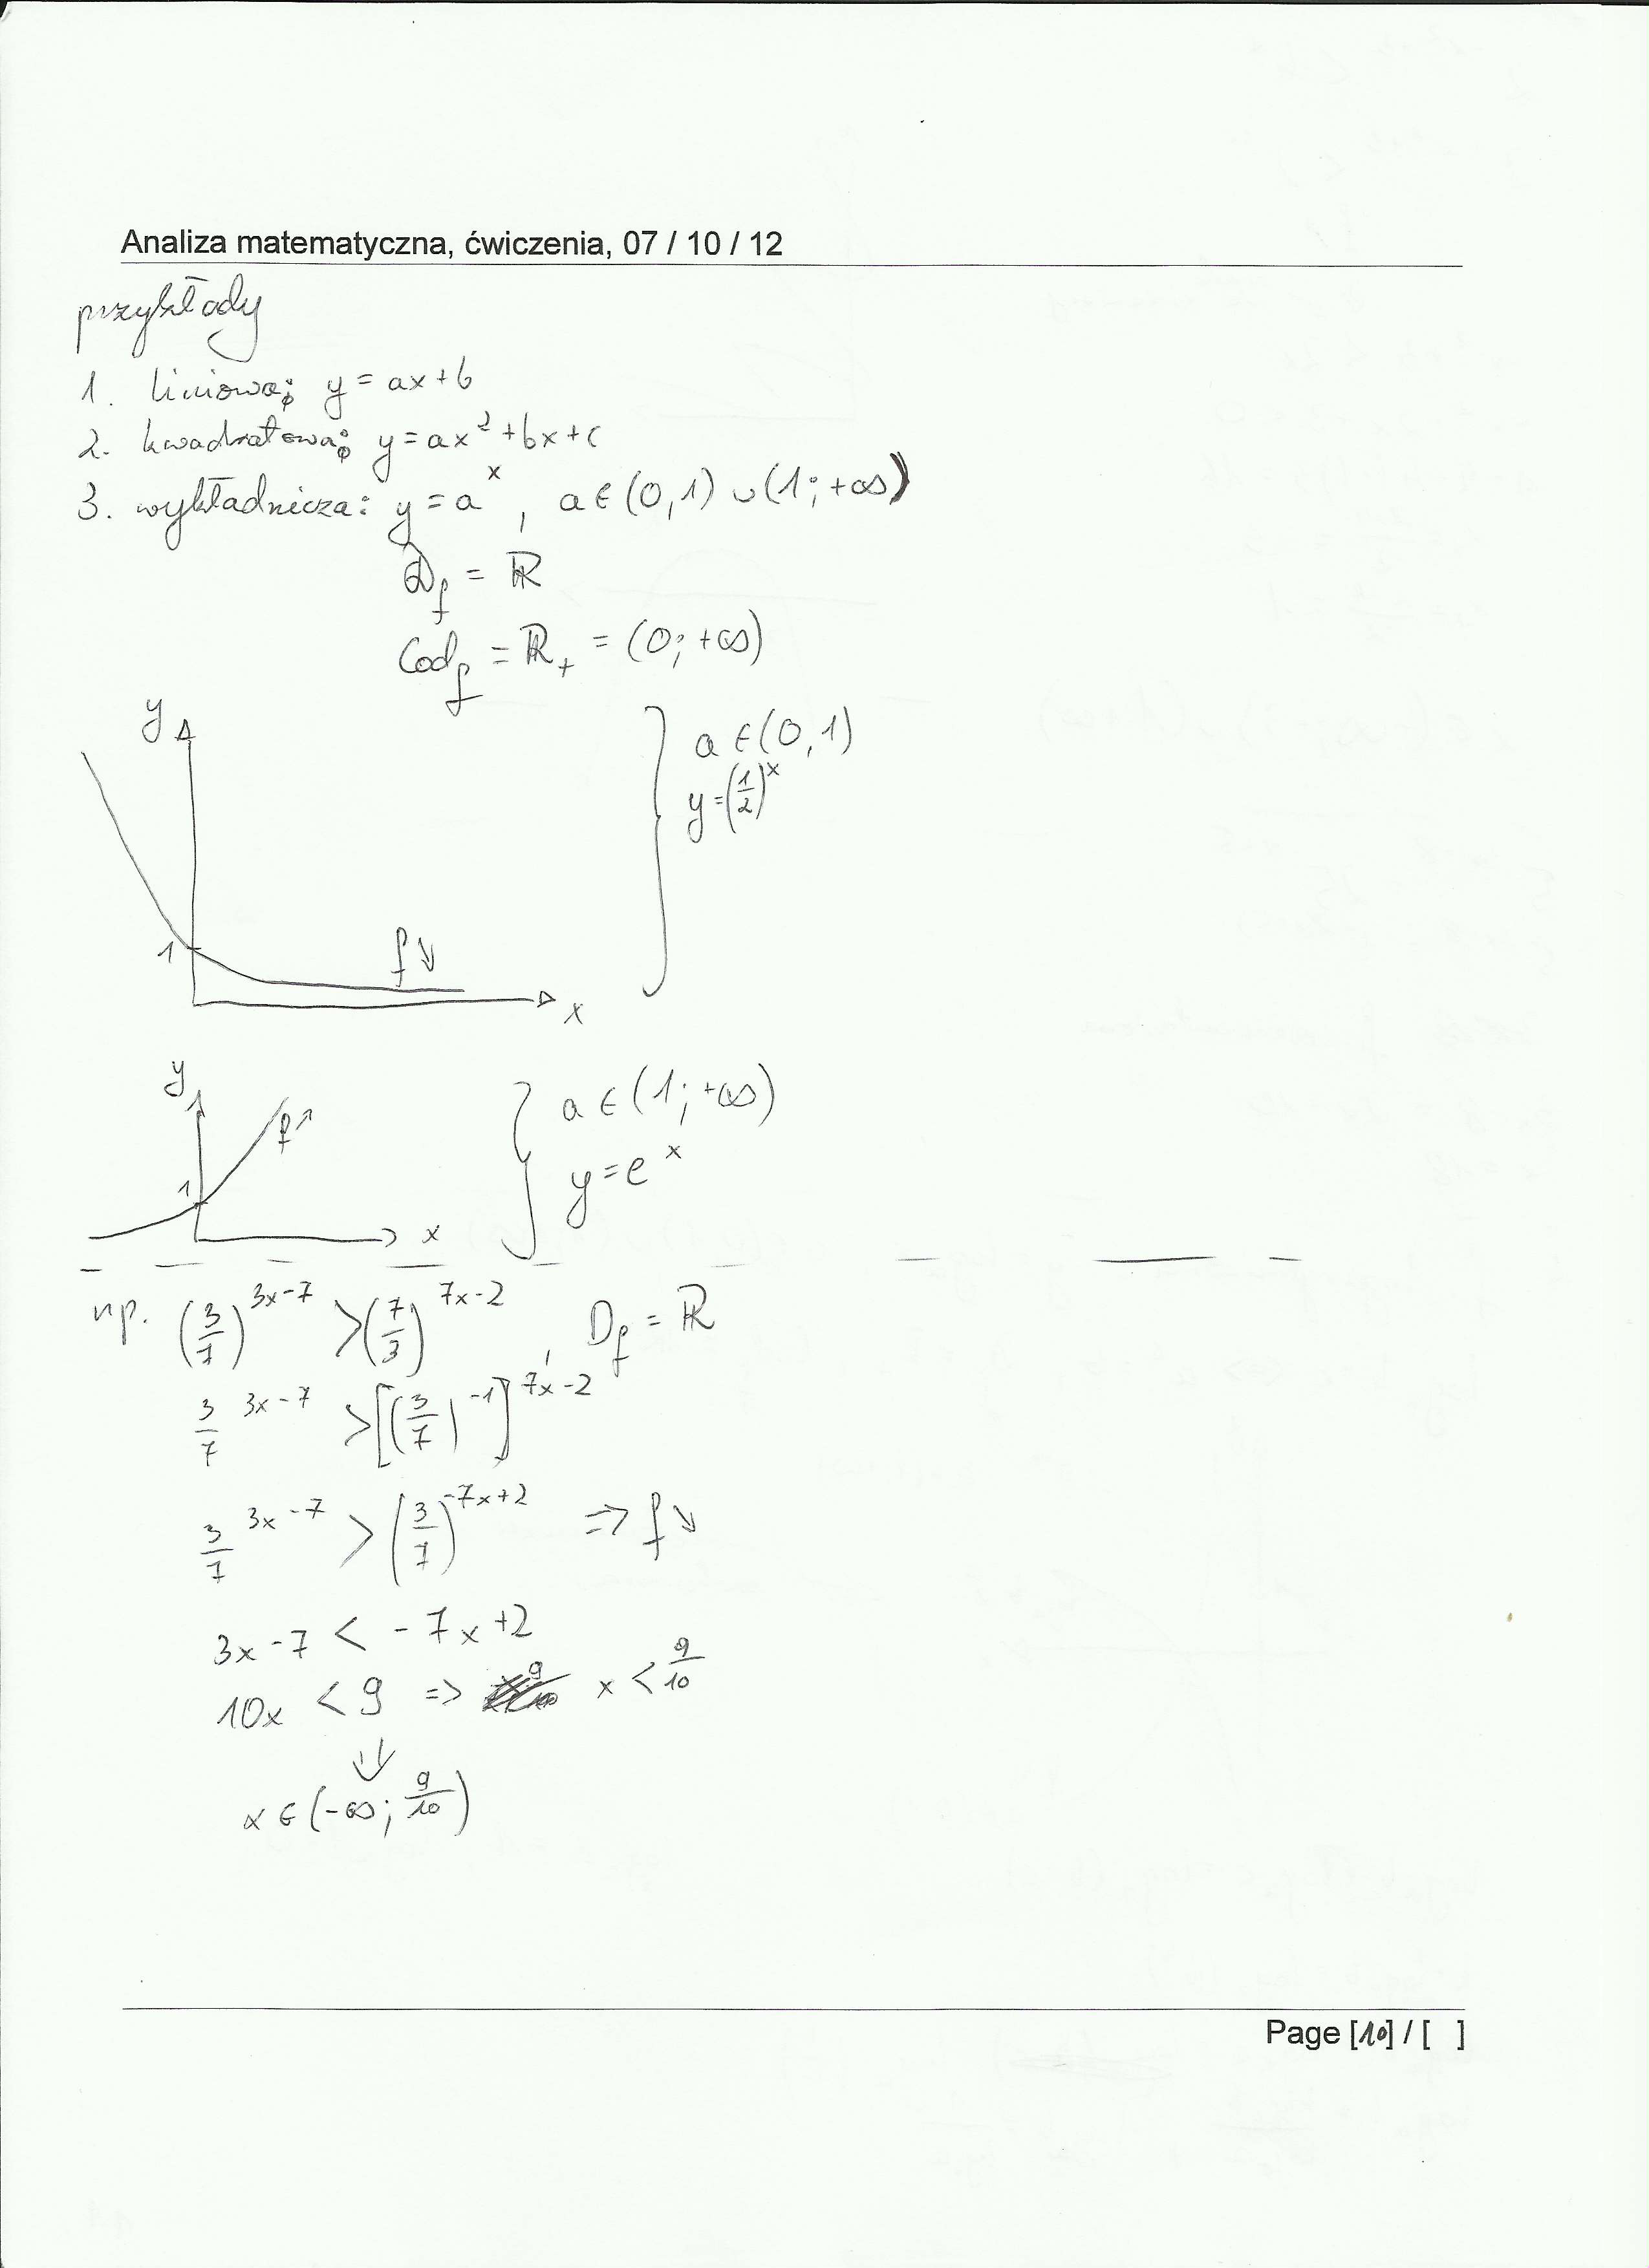 Analiza matematyczna, ćwiczenia, 07 / 10 / 12
przykłady
1. liniowa: y = ax + b
2. kwadratowa: y = ax² + bx + c
3. wykładnicza: y = a^x, a ∈ (0,1) ∪ (1; +∞)
D_f = ℝ
Cod_f = ℝ₊ = (0; +∞)
y
a ∈ (0,1)
y = (1/2)^x
1
f ↘
x
y
a ∈ (1; +∞)
f ↗
y = e^x
1
x
np. (3/7)^(3x-7) > (7/3)^(7x-2), D_f = ℝ
3/7^(3x-7) > [(3/7)^-1]^(7x-2)
3/7^(3x-7) > (3/7)^(-7x+2) => f ↘
3x - 7 < -7x + 2
10x < 9 => x < 9/10
⇓
x ∈ (-∞; 9/10)
Page [10] / [ ]